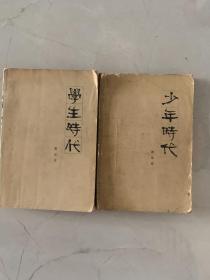 學生時代
少年時代